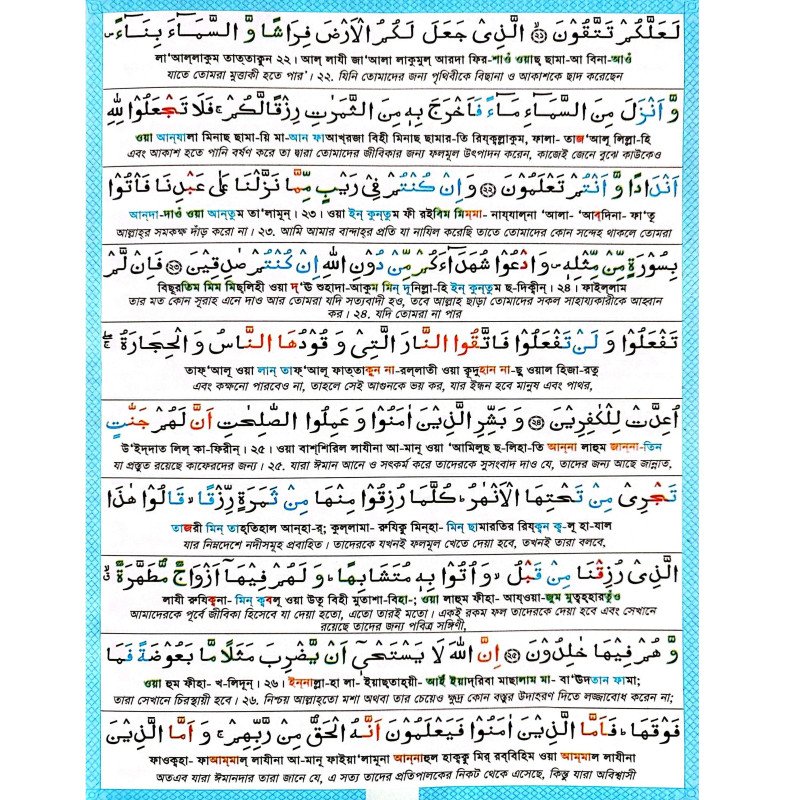 لَعَلَّكُمْ تَتَّقُوْنَ ﴿۲۱﴾ الَّذِىْ جَعَلَ لَكُمُ الْاَرْضَ فِرَاشًا وَّ السَّمَآءَ بِنَآءً
লা‘আল্লাকুম তাত্তাকুন ২২। আল্ লাযী জা‘আলা লাকুমুল্ আরদা ফির-শাওঁ ওয়াছ্ ছামা-আ বিনা-আওঁ
যাতে তোমরা মুত্তাকী হতে পার’। ২২. যিনি তোমাদের জন্য পৃথিবীকে বিছানা ও আকাশকে ছাদ করেছেন
وَّ اَنْزَلَ مِنَ السَّمَآءِ مَآءً فَاَخْرَجَ بِهٖ مِنَ الثَّمَرٰتِ رِزْقًا لَّكُمْ ۚ فَلَا تَجْعَلُوْا لِلّٰهِ
ওয়া আন্‌যালা মিনাছ ছামা-য়ি মা-আন ফাআখ্‌রজা বিহী মিনাছ ছামার-তি রিয্‌ক্বল্লাকুম, ফালা- তাজ‘আলূ লিল্লা-হি
এবং আকাশ হতে পানি বর্ষণ করে তা দ্বারা তোমাদের জীবিকার জন্য ফলমূল উৎপাদন করেন, কাজেই জেনে বুঝে কাউকেও
اَنْدَادًا وَّ اَنْتُمْ تَعْلَمُوْنَ ﴿۲۲﴾ وَ اِنْ كُنْتُمْ فِىْ رَيْبٍ مِّمَّا نَزَّلْنَا عَلٰى عَبْدِنَا فَاْتُوْا
আন্‌দা-দাওঁ ওয়া আন্‌তুম তা‘লামূন্। ২৩। ওয়া ইন্ কুন্‌তুম ফী রইবিম মিম্‌মা- নায্‌যাল্‌না ‘আলা- ‘আব্‌দিনা- ফা’তূ
আল্লাহ্‌র সমকক্ষ দাঁড় করো না। ২৩. আমি আমার বান্দাহ্‌র প্রতি যা নাযিল করেছি তাতে তোমাদের কোন সন্দেহ থাকলে তোমরা
بِسُوْرَةٍ مِّنْ مِّثْلِهٖ ۪ وَ ادْعُوْا شُهَدَآءَكُمْ مِّنْ دُوْنِ اللّٰهِ اِنْ كُنْتُمْ صٰدِقِيْنَ ﴿۲۳﴾ فَاِنْ لَّمْ
বিছুরতিম মিম মিছ্‌লিহী ওয়া দ্‌‘ঊ শুহাদা-আকুম মিন্ দূনিল্লা-হি ইন্ কুন্‌তুম ছ-দিক্বীন্। ২৪। ফাইল্লাম
তার মত কোন সূরাহ এনে দাও আর তোমরা যদি সত্যবাদী হও, তবে আল্লাহ ছাড়া তোমাদের সকল সাহায্যকারীকে আহ্বান
কর। ২৪. যদি তোমরা না পার
تَفْعَلُوْا وَ لَنْ تَفْعَلُوْا فَاتَّقُوا النَّارَ الَّتِىْ وَ قُوْدُهَا النَّاسُ وَ الْحِجَارَةُ ۖۚ
তাফ্‌‘আলূ ওয়া লান্ তাফ্‌‘আলূ ফাত্তাকুন না-রল্লাতী ওয়া কূদুহান না-ছু ওয়াল হিজা-রতু
এবং কক্ষনো পারবেও না, তাহলে সেই আগুনকে ভয় কর, যার ইন্ধন হবে মানুষ এবং পাথর,
اُعِدَّتْ لِلْكٰفِرِيْنَ ﴿۲۴﴾ وَ بَشِّرِ الَّذِيْنَ اٰمَنُوْا وَ عَمِلُوا الصّٰلِحٰتِ اَنَّ لَهُمْ جَنّٰتٍ
উ‘ইদ্দাত লিল্ কা-ফিরীন্। ২৫। ওয়া বাশ্‌শিরিল লাযীনা আ-মানু ওয়া ‘আমিলুছ ছ-লিহা-তি আন্‌না লাহুম জান্‌না-তিন
যা প্রস্তুত রয়েছে কাফেরদের জন্য। ২৫. যারা ঈমান আনে ও সৎকর্ম করে তাদেরকে সুসংবাদ দাও যে, তাদের জন্য আছে জান্নাত,
تَجْرِىْ مِنْ تَحْتِهَا الْاَنْهٰرُ ؕ كُلَّمَا رُزِقُوْا مِنْهَا مِنْ ثَمَرَةٍ رِّزْقًا ۙ قَالُوْا هٰذَا
তাজরী মিন্ তাহ্‌তিহাল আন্‌হা-র; কুল্লামা- রুযিকু মিন্‌হা- মিন্ ছামারতির রিয্‌কুন ক্ব-লূ হা-যাল
যার নিম্নদেশে নদীসমূহ প্রবাহিত। তাদেরকে যখনই ফলমূল খেতে দেয়া হবে, তখনই তারা বলবে,
الَّذِىْ رُزِقْنَا مِنْ قَبْلُ ۙ وَ اُتُوْا بِهٖ مُتَشَابِهًا ؕ وَ لَهُمْ فِيْهَآ اَزْوَاجٌ مُّطَهَّرَةٌ ۙ
লাযী রুযিক্বনা- মিন্ ক্ববলূ ওয়া উতূ বিহী মুতাশা-বিহা-; ওয়া লাহুম ফীহা- আয্‌ওয়া-জুম মুত্বহ্‌হারতুঁও
আমাদেরকে পূর্বে জীবিকা হিসেবে যা দেয়া হতো, এতো তারই মতো। একই রকম ফল তাদেরকে দেয়া হবে এবং সেখানে
রয়েছে তাদের জন্য পবিত্র সঙ্গিণী,
وَّ هُمْ فِيْهَا خٰلِدُوْنَ ﴿۲۵﴾ اِنَّ اللّٰهَ لَا يَسْتَحْىٖٓ اَنْ يَّضْرِبَ مَثَلًا مَّا بَعُوْضَةً فَمَا
ওয়া হুম ফীহা- খ-লিদূন্। ২৬। ইন্‌নাল্লা-হা লা- ইয়াছ্‌তাহ্‌য়ী- আইঁ ইয়াদ্‌রিবা মাছালাম মা- বা‘ঊদতান ফামা;
তারা সেখানে চিরস্থায়ী হবে। ২৬. নিশ্চয় আল্লাহ্‌তো মশা অথবা তার চেয়েও ক্ষুদ্র কোন বস্তুর উদাহরণ দিতে লজ্জাবোধ করেন না;
فَوْقَهَا ؕ فَاَمَّا الَّذِيْنَ اٰمَنُوْا فَيَعْلَمُوْنَ اَنَّهُ الْحَقُّ مِنْ رَّبِّهِمْ ۚ وَ اَمَّا الَّذِيْنَ
ফাওক্বহা- ফাআম্‌মাল্ লাযীনা আ-মানূ ফাইয়া‘লামূনা আন্‌নাহুল হাক্বকু মির্ রব্‌বিহিম ওয়া আম্‌মাল লাযীনা
অতএব যারা ঈমানদার তারা জানে যে, এ সত্য তাদের প্রতিপালকের নিকট থেকে এসেছে, কিন্তু যারা অবিশ্বাসী